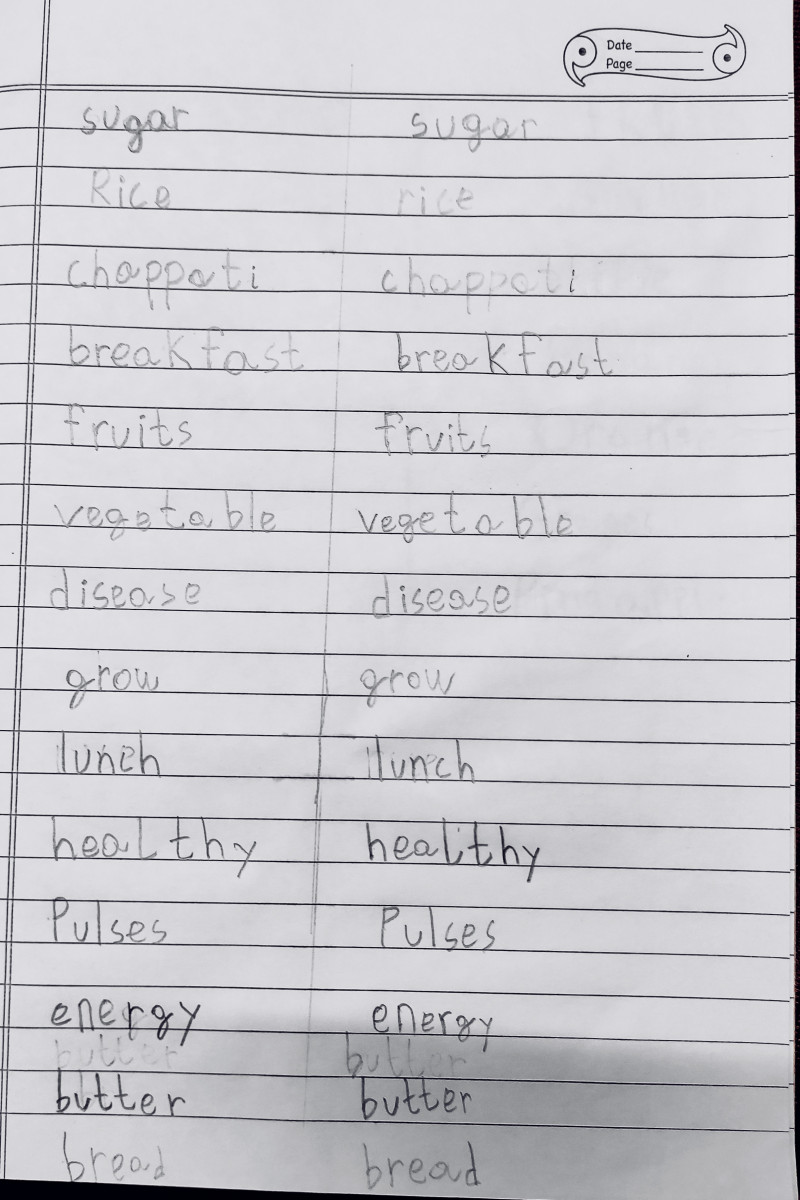 Date
Page
sugar sugar
Rice rice
chappati chappati
breakfast breakfast
fruits fruits
vegetable vegetable
disease disease
grow grow
lunch lunch
healthy healthy
Pulses Pulses
energy energy
butter butter
butter butter
bread bread